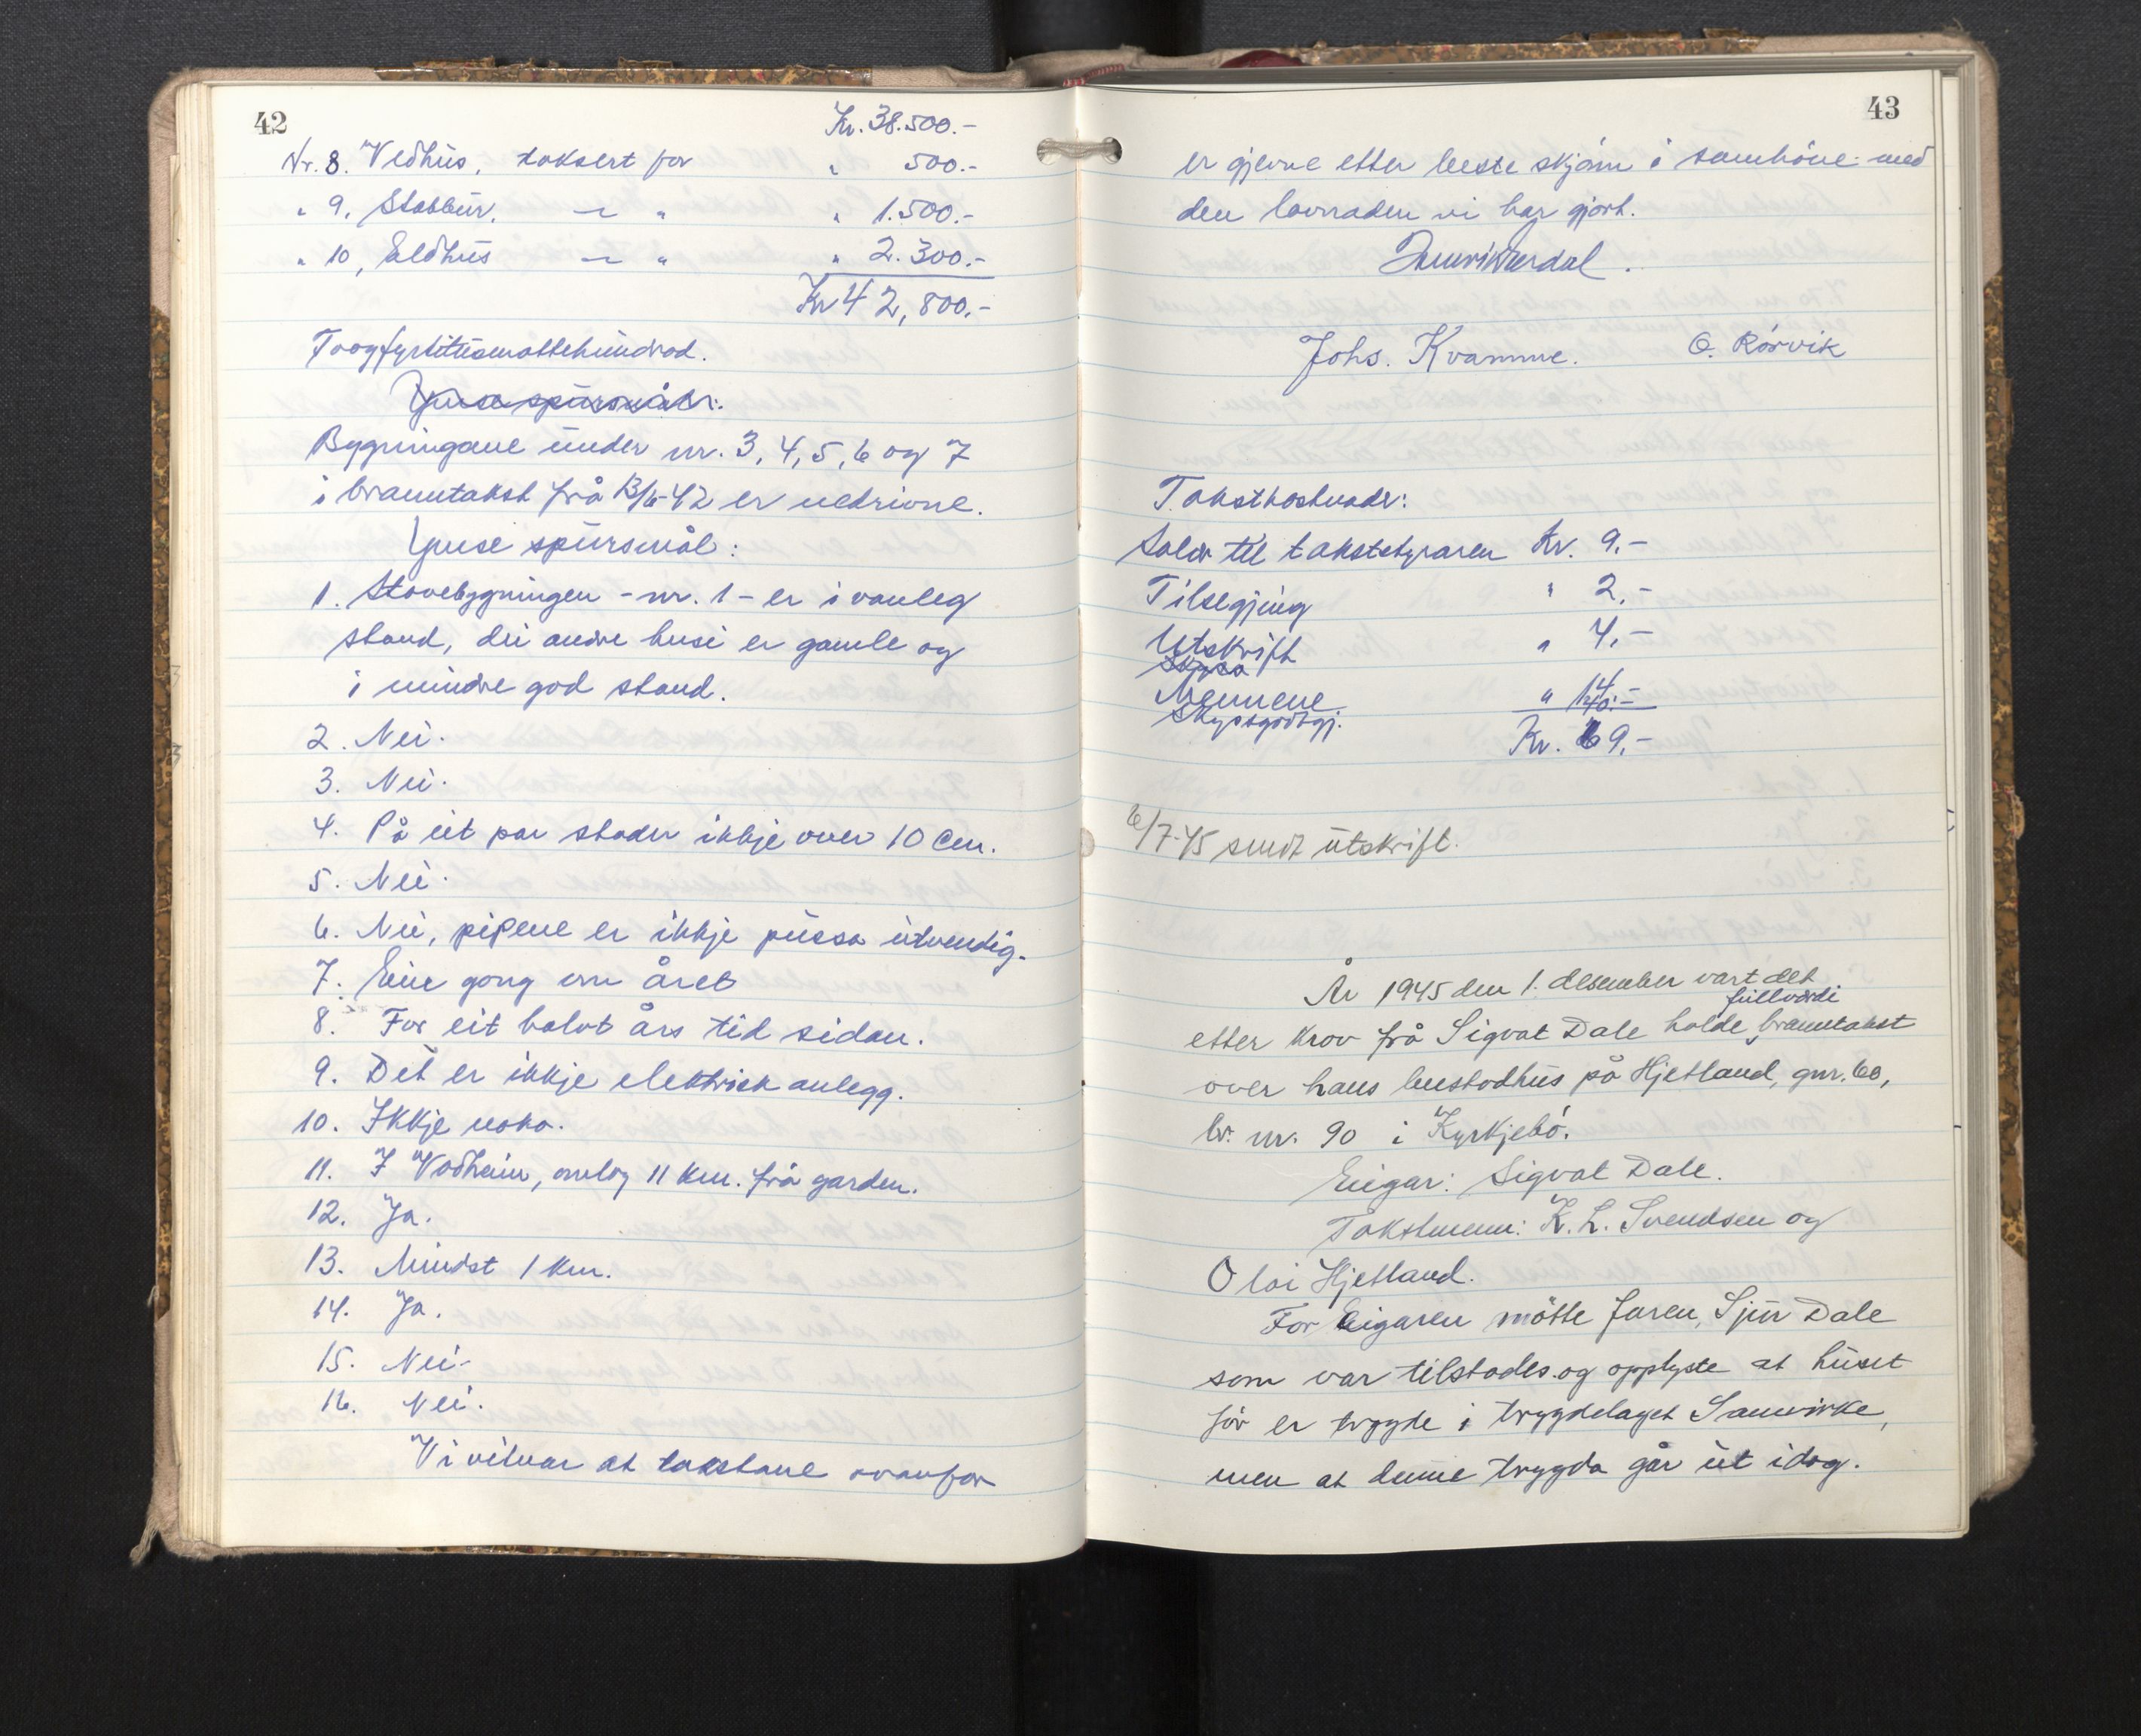 42
Kr. 38.500.-
Nr. 8. Vedhus, taksert for " 500.-
" 9, Stabbur, — " " 1.500.-
" 10, Eldhus — " " 2.300.-
Kr 42,800.-
Toogfyrtitusenåttehundrad.
Ymse spursmål:
Bygningane under nr. 3, 4, 5, 6 og 7
i branntakst frå 13/6-42 er nedrivne.
Ymse spursmål:
1. Stovebygningen - nr. 1 - er i vanleg
stand, dei andre husi er gamle og
i mindre god stand.
2. Nei.
3. Nei.
4. På eit par stader ikkje over 10 cm.
5. Nei.
6. Nei, pipene er ikkje pussa utvendig.
7. Ein gong om året
8. For eit halvt års tid sidan.
9. Det er ikkje elektrisk anlegg.
10. Ikkje noko.
11. I Vadheim, omlag 11 km. frå garden.
12. Ja.
13. Mindst 1 km.
14. Ja.
15. Nei.
16. Nei.
Vi vitnar at takstane ovanfor
43
er gjevne etter beste skjøn i samhøve med
den lovnaden vi har gjort.
Johs. Kvamme. O. Rørvik
Takstkostnadr:
Salær til takststyraren Kr. 9.-
Tilsegjing " 2.-
Utskrift " 4.-
Skyss
Mennene
Skyssgodtgj. "
Kr. 69.-
6/7-45 sendt utskrift.
År 1945 den 1. desember vart det
fullverdi
etter krav frå Sigvat Dale halde branntakst
over hans bustadhus på Hjetland, gnr. 60,
br. nr. 90 i Kyrkjebø.
Eigar: Sigvat Dale.
Takstmenn: K. L. Svendsen og
Olai Hjetland.
For Eigaren møtte faren, Sjur Dale
som var tilstades og opplyste at huset
før er trygde i trygdelaget Samvirke,
men at denne trygda går ut idag.